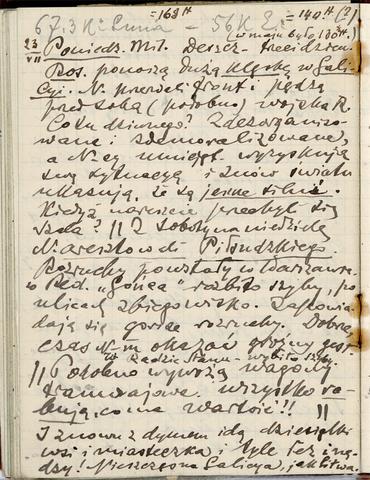 = 168 ff = 140 ff (?)
67.3 K: — 56 K
(w maju było 100 ff.)
23 Poniedz. Mil. Deszcz - trzeci dzień.
VII Ros. ponoszą dużą klęskę w Gali-
cyi. N. przerwali front i pędzą
przed sobą (podobno) wojska R.
Co tu dziwnego? Zdezorganizo-
wane i zdemoralizowane,
a N-cy umieją wyzyskują
swą sytuacyą i znów światu
ukazują, że są jeszcze silni.
Kiedyż nareszcie przebył się
szala? || Z soboty na niedzielę
N. aresztowali Piłsudskiego.
Rozruchy powstały w Warszawie
w Red. „Gońca" rozbito szyby, po
ulicach zbiegowisko. Zapowia-
dają się gorsze rozruchy. Dobra
czas N-m okazać groźny gest
W Radzie Stanu - wybito szyby.
|| Podobno wywożą wagony
tramwajowe. Wszystko ra-
bują, co ma wartość!! ||
I znowu z dymem idą dziesiątki
wsi i miasteczka i tyle tej nę-
dzy! Nieszczęsna Galicya, jak Litwa.